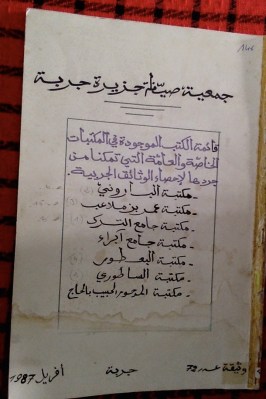 جمعية صيانة جزيرة جربة
قائمة الكتب الموجودة في المكتبات
الخاصة والعامة التي تمكنا من
جردها لإحصاء الوثائق الجربية.
- مكتبة الباروني
- مكتبة عمر بن ملاعب
- مكتبة جامع الترك
- مكتبة جامع آجراء
- مكتبة البعطور
- مكتبة الساطوري
- مكتبة المرحوم الحبيب بالحاج
وثيقة عدد 73
جربة
أفريل 1987